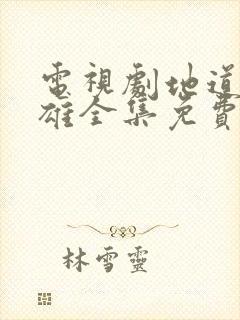 電視劇地道
雄全集免費
林雪靈